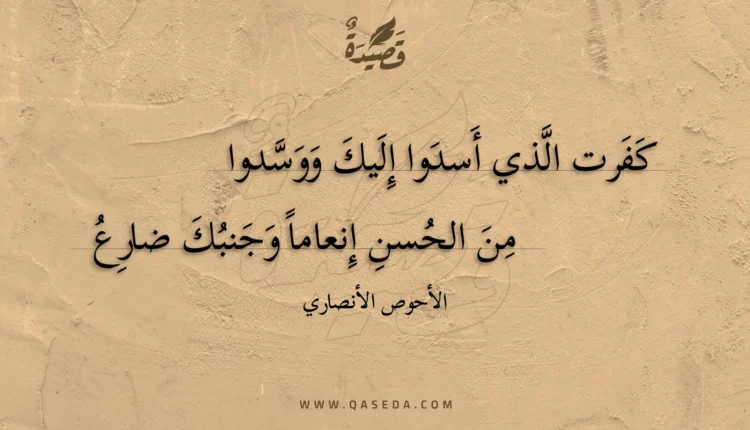 قَصِيدَةٌ
كَفَرت الَّذي أَسدَوا إِلَيكَ وَوَسَّدوا
مِنَ الحُسنِ إِنعاماً وَجَنبُكَ ضارِعُ
الأحوص الأنصاري
WWW.QASEDA.COM